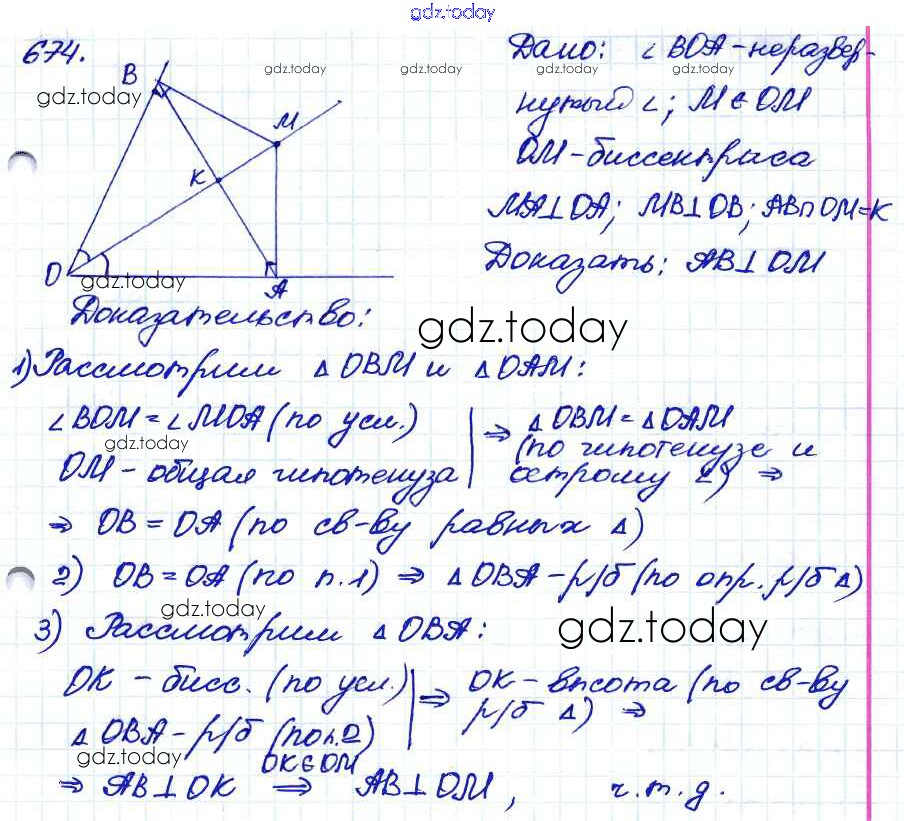 gdz.today
674.
Дано: ∠ BOA - неразвер-
нутый ∠; M ∈ OM
OM - биссектриса
MA⊥OA; MB⊥OB; AB∩OM=K
Доказать: AB⊥OM
B
M
K
O
A
gdz.today
gdz.today
gdz.today
gdz.today
gdz.today
Доказательство:
gdz.today
1) Рассмотрим △ OBM и △ OAM:
∠ BOM = ∠ MOA (по усл.) ⇒ △ OBM = △ OAM
gdz.today
OM - общая гипотенуза (по гипотенузе и острому ∠) ⇒
⇒ OB = OA (по св-ву равных △)
2) OB = OA (по п.1) ⇒ △ OBA - р/б (по опр. р/б △)
gdz.today
3) Рассмотрим △ OBA:
gdz.today
OK - бисс. (по усл.) ⇒ OK - высота (по св-ву
△ OBA - р/б (по п.2) р/б △) ⇒
gdz.today
OK∈OM
⇒ AB⊥OK ⇒ AB⊥OM, ч.т.д.